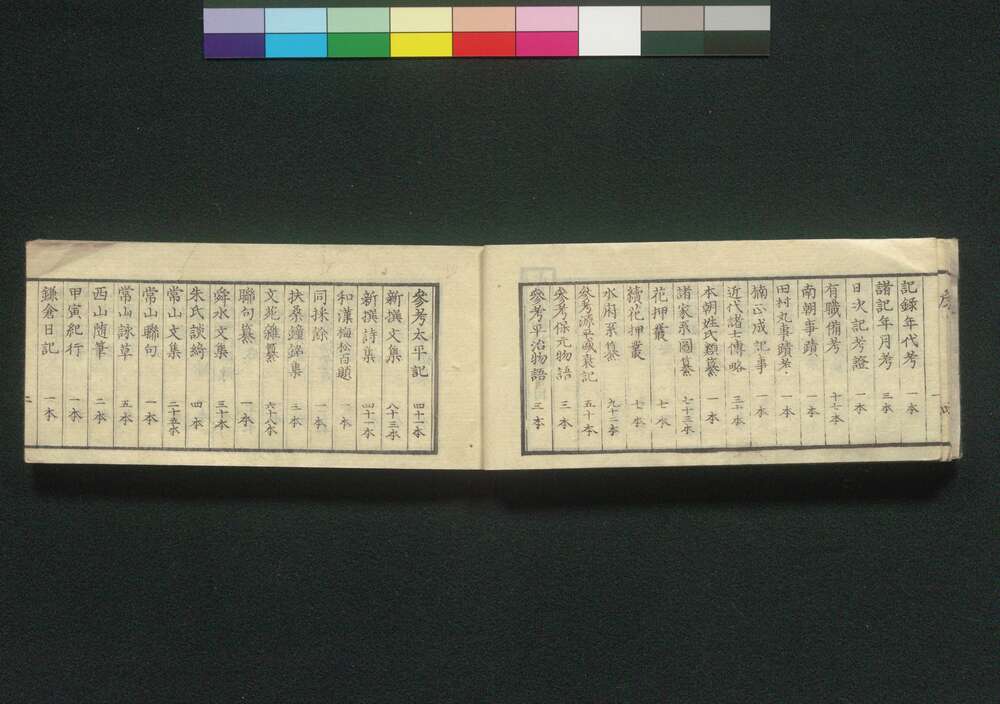 序
記録年代考 一本
諸記年月考 三本
日次記考證 一本
有職備考 十七本
南朝事蹟 一本
田村丸事蹟考 一本
楠正成記事 一本
近代諸士傳略 三十本
本朝姓氏類纂 一本
諸家系圖纂 七十三本
花押叢 七本
續花押叢 七本
水府系纂 九十二本
參考源平盛衰記 五十本
參考保元物語 三本
參考平治物語 三本
參考太平記 四十一本
新撰文集 八十三本
新撰詩集 四十一本
和漢梅松百題 一本
同採餘 一本
扶桑鐘銘集 三本
文苑雜纂 六十八本
聯句纂 一本
舜水文集 三十本
朱氏談綺 四本
常山文集 二十五本
常山聯句 一本
常山詠草 五本
西山随筆 二本
甲寅紀行 一本
鎌倉日記 一本